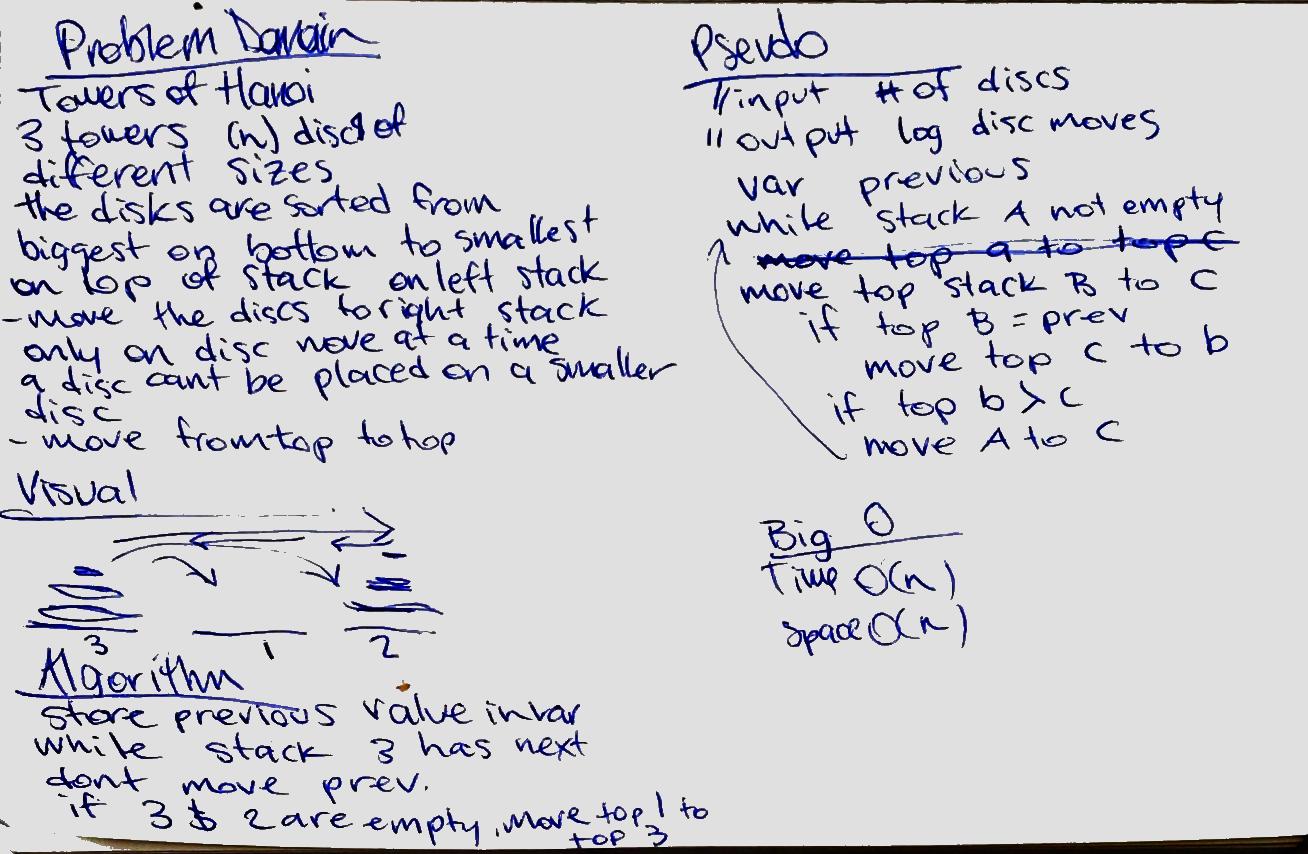 Problem Domain
Towers of Hanoi
3 towers (n) discs of
different sizes
the disks are sorted from
biggest on bottom to smallest
on top of stack on left stack
- move the discs to right stack
only on disc move at a time
a disc cant be placed on a smaller
disc
- move from top to top
Visual
3 1 2
Algorithm
store previous value in var
while stack 3 has next
dont move prev.
if 3 & 2 are empty, move top 1 to
top 3
Pseudo
// input # of discs
// output log disc moves
var previous
while stack A not empty
move top a to top C
move top stack B to C
if top B = prev
move top C to b
if top b > C
move A to C
Big O
Time O(n)
space O(n)